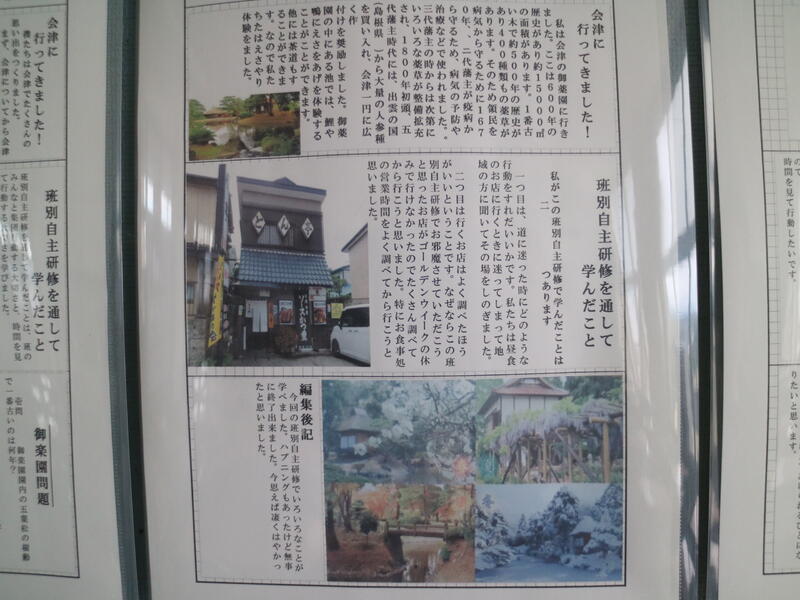 会津に
行ってきました！
私は会津の御薬園に行き
ました。ここは600年の
歴史があり約15000㎡
の面積があります。1番古
い木で約500年の歴史が
あり400種類もの薬草が
あります。そのため領民を
病気から守るために167
0年、二代藩主が疫病か
ら守るため、病気の予防や
治療などで使われました。
三代藩主の時からは次第に
いろいろな薬草が整備拡充
され、1800年初頭、五
代藩主時代には、出雲の国
(島根県)から大量の人参種
を買い入れ、会津一円に広
く作
付けを奨励しました。御薬
園の中にある池では、鯉や
鴨にえさをあげを体験する
ことができます。
他には茶道もす
ることができま
す。なので私た
ちたはえさやり
体験をました。
班別自主研修を通して
学んだこと
私がこの班別自主研修で学んだことは
二
つあります
一つ目は、道に迷った時にどのような
行動をすればいいかです。私たちは昼食
のお店に行くときに迷ってしまって地
域の方に聞いてその場をしのぎました。
二つ目は行くお店はよく調べたほう
がいいということです。なぜならこの班
別自主研修でお邪魔させていただこう
と思ったお店がゴールデンウイークの休
みで行けなかったのでたくさん調べて
から行こうと思いました。特にお食事処
の営業時間をよく調べてから行こうと
思いました。
とん亭
編集後記
今回の班別自主研修でいろいろなことが
学べました。ハプニングもあったけど無事
に終了出来ました。今思えば凄くはやかっ
たと思いました。
会津に
行ってきました！
僕たちは会津でたくさんの
思い出をつくりました。
まず、会津についてから会津
班別自主研修を通して
学んだこと
班別自主研修を通して学んだことは、班の
みんなと集団行動する大切さと、時間を見
て行動する大切さを学びました。
御薬園問題
壱問
御薬園園内の五葉松の樹齢
で一番古いのは何年？
時間を見て行動したいです。
りたいと思います。